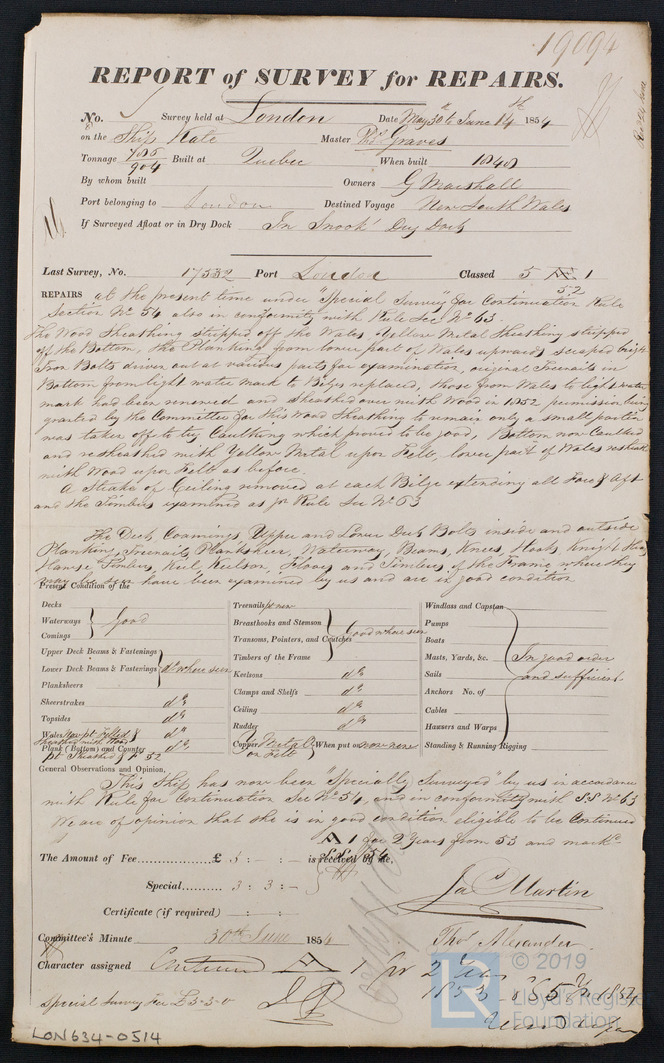 19094
REPORT of SURVEY for REPAIRS.
No. Survey held at London Date May 30 & June 14th 1854
on the Ship Kate Master Thos Graves
Tonnage 904 Built at Quebec When built 1848
By whom built Owners G Marshall
Port belonging to London Destined Voyage New South Wales
If Surveyed Afloat or in Dry Dock In Snook's Dry Dock
Last Survey, No. 17532 Port London Classed 5 A 1
52
REPAIRS at the present time under "Special Survey" for Continuation Rule
Section No 54 also in conformity with Rule Sec No 63.
The Wood Sheathing stripped off the Wales, Yellow Metal Sheathing stripped
off the Bottom, the Planking from lower part of Wales upwards scraped bright
Iron Bolts driven out at various parts for examination, original Treenails in
Bottom from light water mark to Bilges replaced, those from Wales to light water
mark had been renewed and sheathed over with Wood in 1852 permission being
granted by the Committee for this Wood Sheathing to remain only a small portion
was taken off to try Caulking which proved to be good, Bottom now Caulked
and resheathed with Yellow Metal upon Felt, lower part of Wales resheathed
with Wood upon Felt as before.
A Strake of Ceiling removed at each Bilge extending all Fore & Aft
and the Timbers examined as pr Rule Sec No 63
The Deck, Coamings, Upper and Lower Deck Bolts inside and outside
Planking, Treenails, Planksheer, Waterway, Beams, Knees, Hooks, Knight Heads
Hawse Timbers, Keel, Keelson, Floors and Timbers of the Frame where they
may be seen have been examined by us and are in good condition
Present Condition of the
Decks
Waterways } Good
Comings
Upper Deck Beams & Fastenings
Lower Deck Beams & Fastenings } do where seen
Planksheers
Sheerstrakes do
Topsides do
Wales New pt Felted & do
sheathed with Wood
Plank (Bottom) and Counter do
pt Sheathed & F 52
Treenails pt new
Breasthooks and Stemson
Transoms, Pointers, and Crutches } Good where seen
Timbers of the Frame
Keelsons do
Clamps and Shelfs do
Ceiling do
Rudder do
Copper Metal on Felt When put on now new
Windlass and Capstan
Pumps
Boats
Masts, Yards, &c. In good order
Sails and sufficient
Anchors No. of
Cables
Hawsers and Warps
Standing & Running Rigging
General Observations and Opinion,
This Ship has now been "Specially Surveyed" by us in accordance
with Rule for Continuation Sec No 54, and in conformity with S.S No 63
We are of opinion that she is in good condition eligible to be Continued
A 1 for 2 Years from 53 and marked
The Amount of Fee............... £ 5 : - : - is received by me,
Special.......... 3 : 3 : -
Jas Martin
Certificate (if required) - : - : -
Committee's Minute 30th June 1854
Thos Alexander
Character assigned Continued A 1 for 2 Years
1853 - SS 54 1854
Special Survey fee £3-3-0
© 2019
LR
Lloyd's Register
Foundation
LON634-0514